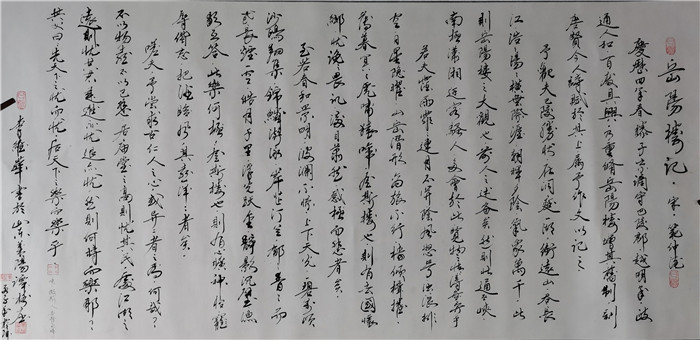 岳陽樓記·宋·范仲淹
慶曆四年春滕子京謫守巴陵郡越明年政
通人和百廢具興乃重修岳陽樓增其舊制刻
唐賢今人詩賦於其上屬予作文以記之
予觀夫巴陵勝狀在洞庭一湖銜遠山吞長
江浩浩湯湯橫無際涯朝暉夕陰氣象萬千此
則岳陽樓之大觀也前人之述備矣然則北通巫峽
南極瀟湘遷客騷人多會於此覽物之情得無異乎
若夫霪雨霏霏連月不開陰風怒號濁浪排
空日星隱曜山岳潛形商旅不行檣傾楫摧
薄暮冥冥虎嘯猿啼登斯樓也則有去國懷
鄉憂讒畏譏滿目蕭然感極而悲者矣
至若春和景明波瀾不驚上下天光一碧萬頃
沙鷗翔集錦鱗游泳岸芷汀蘭郁郁青青而
或長煙一空皓月千里浮光躍金靜影沉璧漁
歌互答此樂何極登斯樓也則有心曠神怡寵
辱偕忘把酒臨風其喜洋洋者矣
嗟夫予嘗求古仁人之心或異二者之為何哉
不以物喜不以己悲居廟堂之高則憂其民處江湖之
遠則憂其君是進亦憂退亦憂然則何時而樂耶
其必曰先天下之憂而憂後天下之樂而樂乎